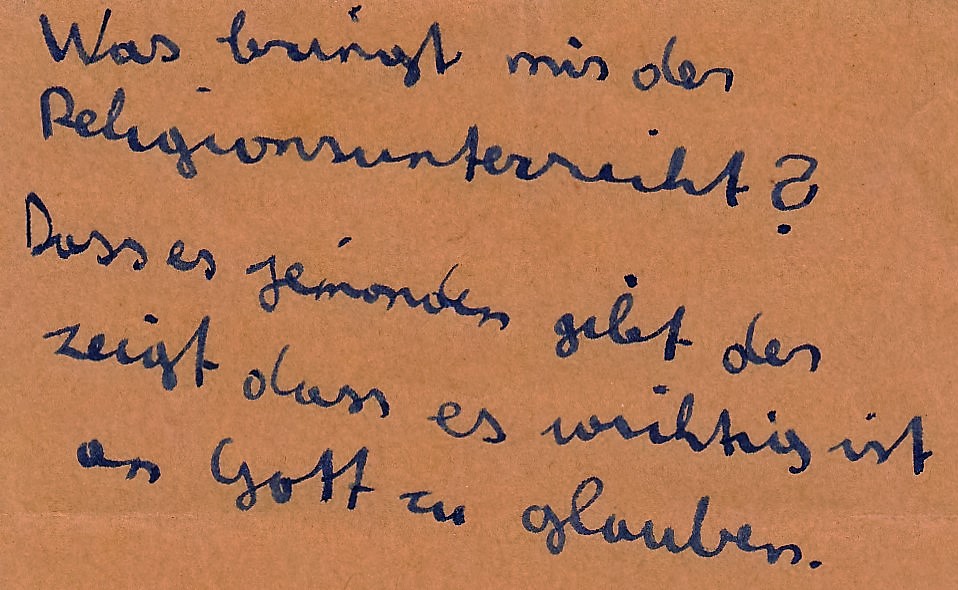 Was bringt mir der
Religionsunterricht?
Dass es jemanden gibt der
zeigt dass es wichtig ist
an Gott zu glauben.